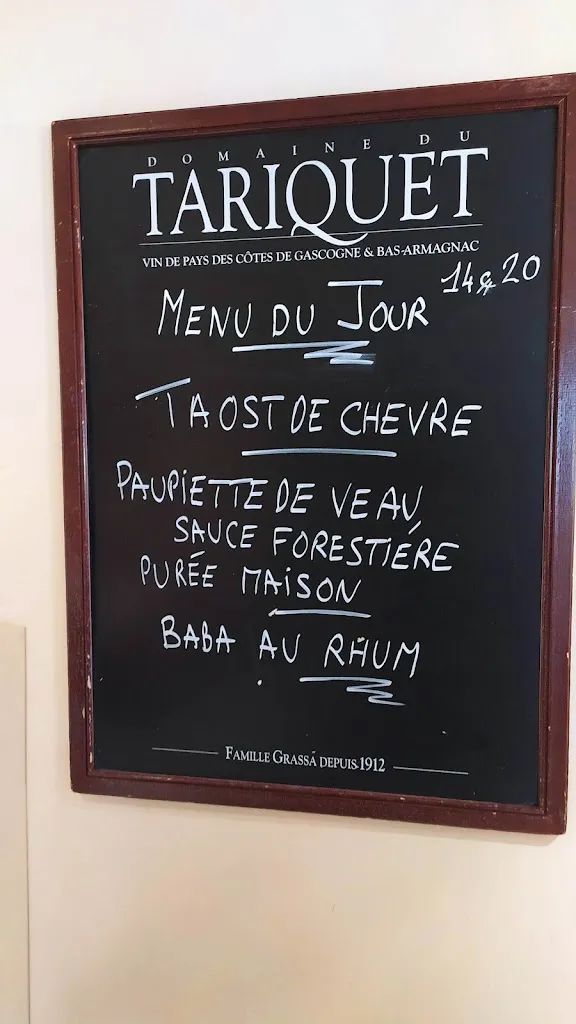 DOMAINE DU
TARIQUET
VIN DE PAYS DES CÔTES DE GASCOGNE & BAS-ARMAGNAC
14€20
MENU DU JOUR
TAOST DE CHEVRE
PAUPIETTE DE VEAU,
SAUCE FORESTIÉRE
PURÉE MAISON
BABA AU RHUM
FAMILLE GRASSA DEPUIS 1912